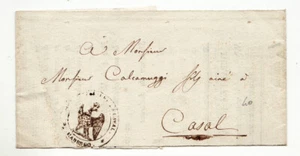 A Monsieur
Monsieur Calcamuggi fils ainé à
Casal